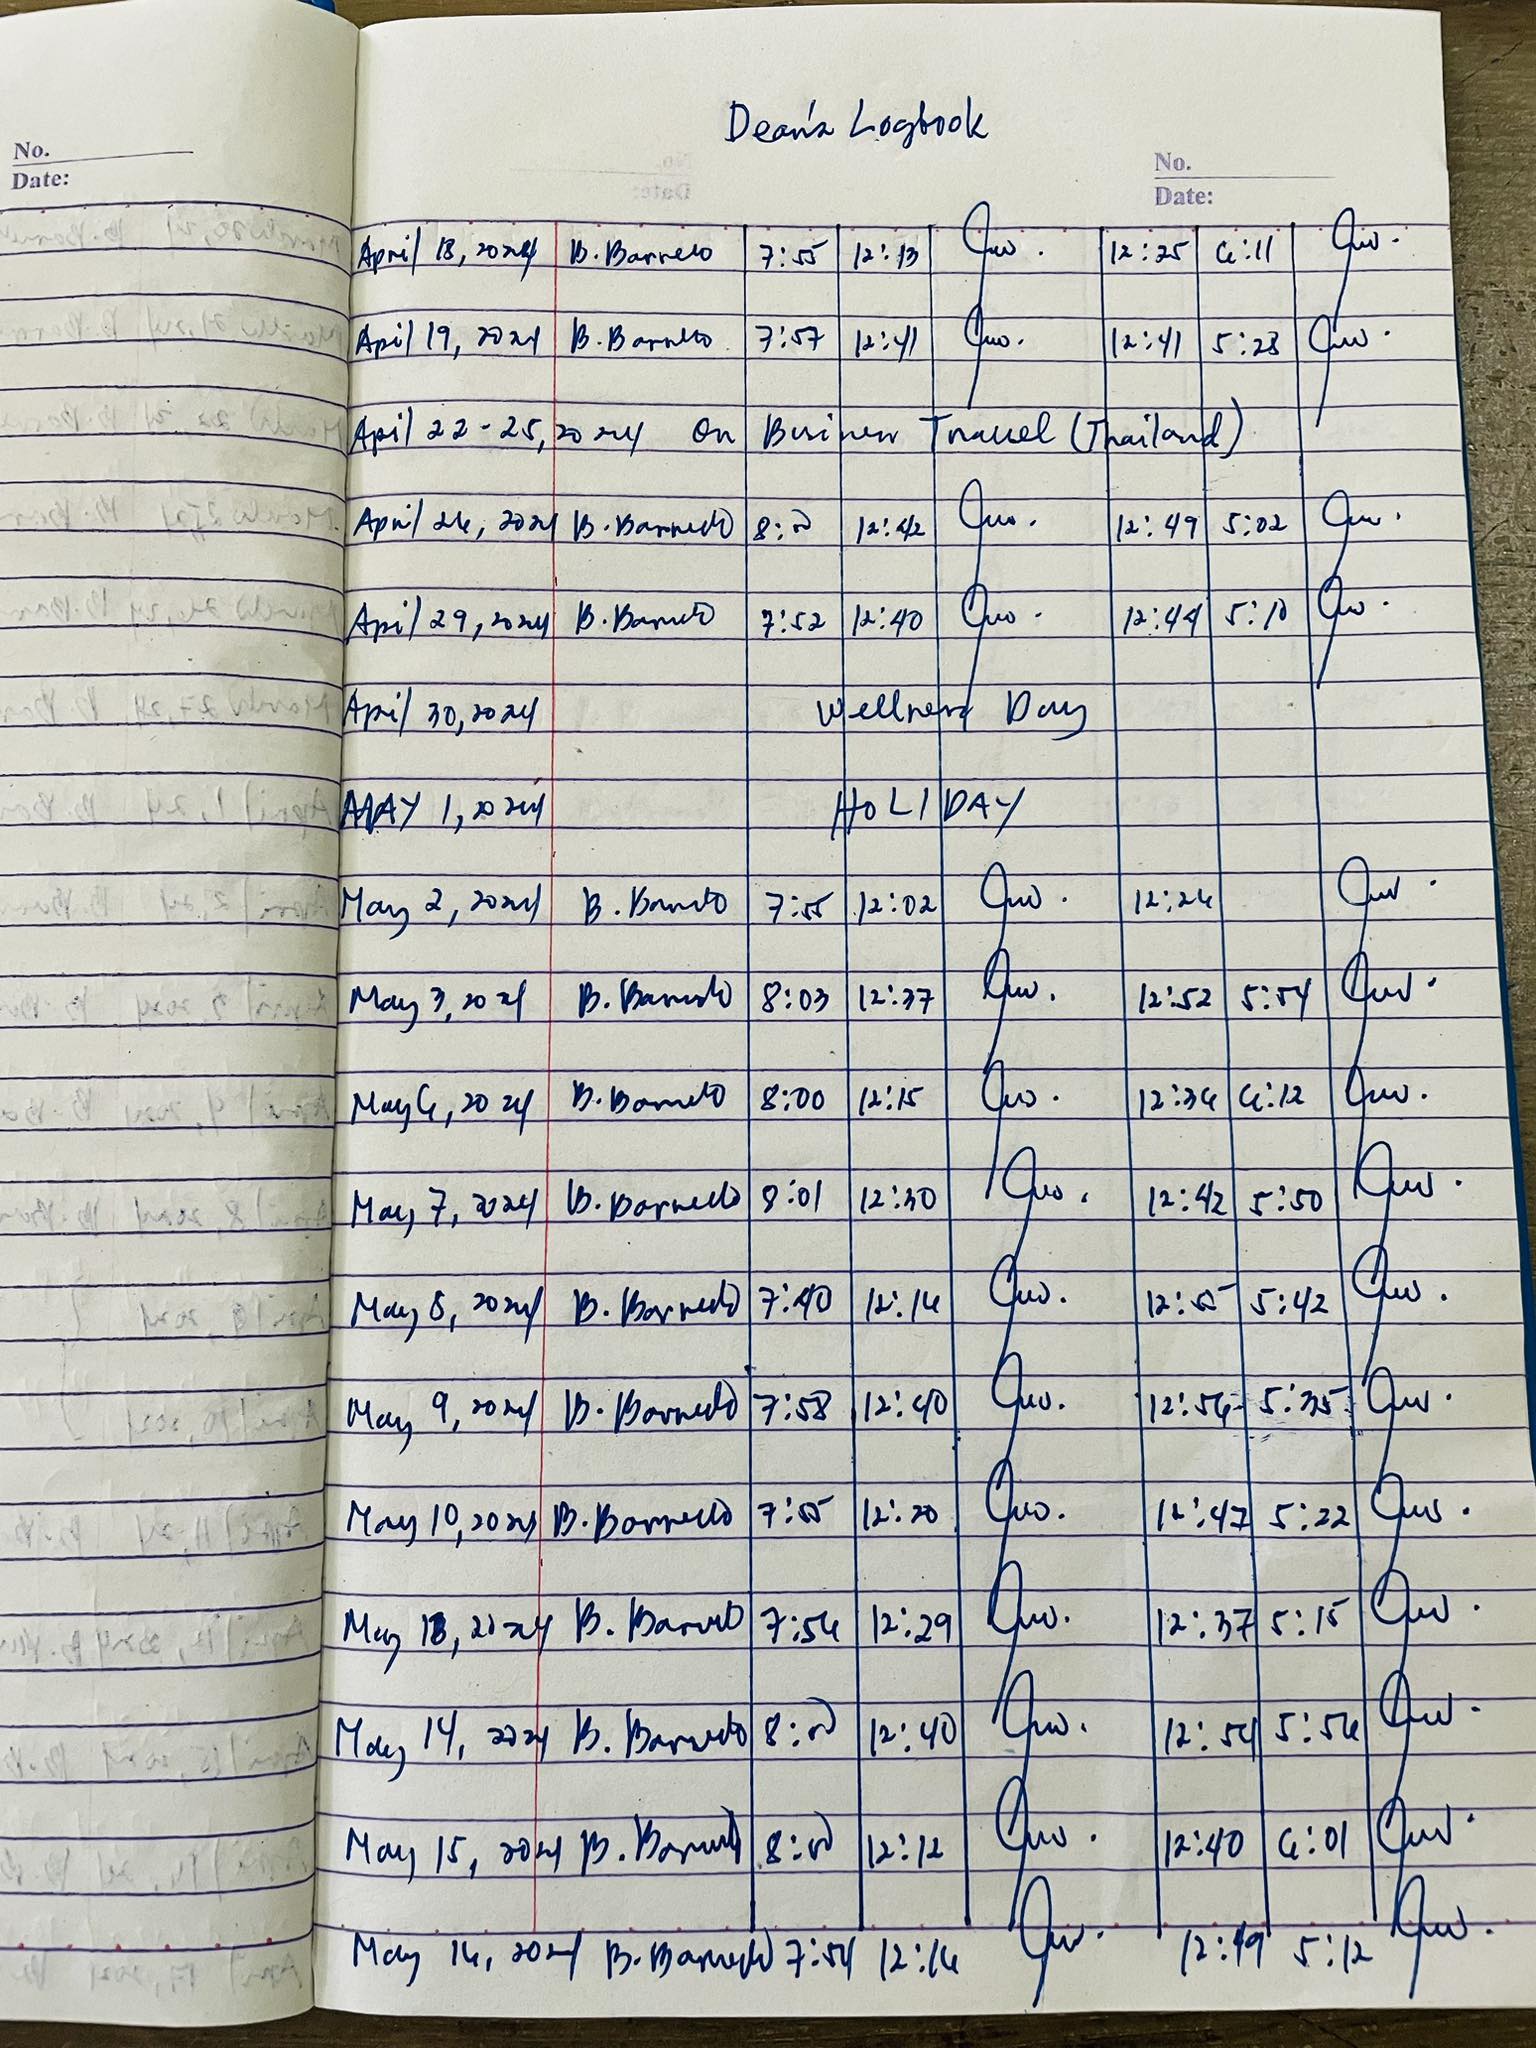 Dean's Logbook
No.
Date:
No.
Date:
April 18, 2024 B. Barnedo 7:55 12:13 12:25 6:11
April 19, 2024 B. Barnedo 7:57 12:41 12:41 5:28
April 22-25, 2024 On Business Travel (Thailand)
April 26, 2024 B. Barnedo 8:00 12:42 12:49 5:02
April 29, 2024 B. Barnedo 7:52 12:40 12:44 5:10
April 30, 2024 Wellness Day
MAY 1, 2024 HOLIDAY
May 2, 2024 B. Barnedo 7:55 12:02 12:26
May 3, 2024 B. Barnedo 8:03 12:37 12:52 5:54
May 6, 2024 B. Barnedo 8:00 12:15 12:36 6:12
May 7, 2024 B. Barnedo 8:01 12:30 12:42 5:50
May 8, 2024 B. Barnedo 7:40 12:16 12:55 5:42
May 9, 2024 B. Barnedo 7:58 12:40 12:56 5:35
May 10, 2024 B. Barnedo 7:55 12:20 12:47 5:22
May 13, 2024 B. Barnedo 7:56 12:29 12:37 5:15
May 14, 2024 B. Barnedo 8:00 12:40 12:54 5:56
May 15, 2024 B. Barnedo 8:00 12:12 12:40 6:01
May 16, 2024 B. Barnedo 7:54 12:16 12:49 5:12